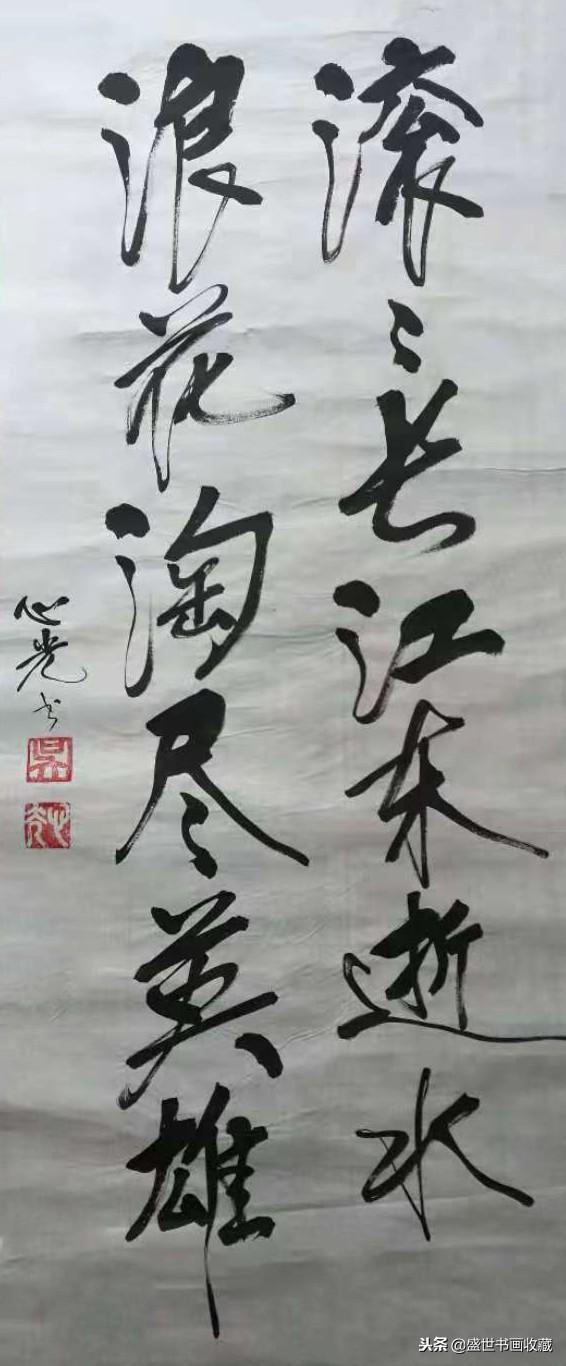 滚〻长江东逝水
浪花淘尽英雄
心光书
吴
头条@盛世书画收藏